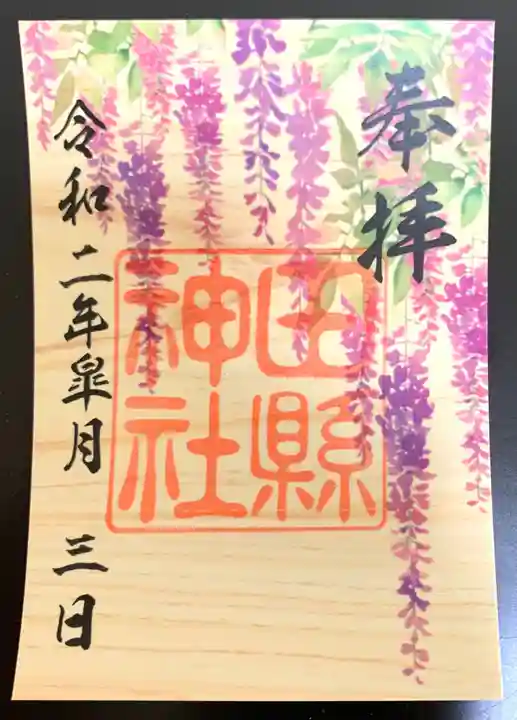 奉拝
田縣
神社
令和二年皐月 三日